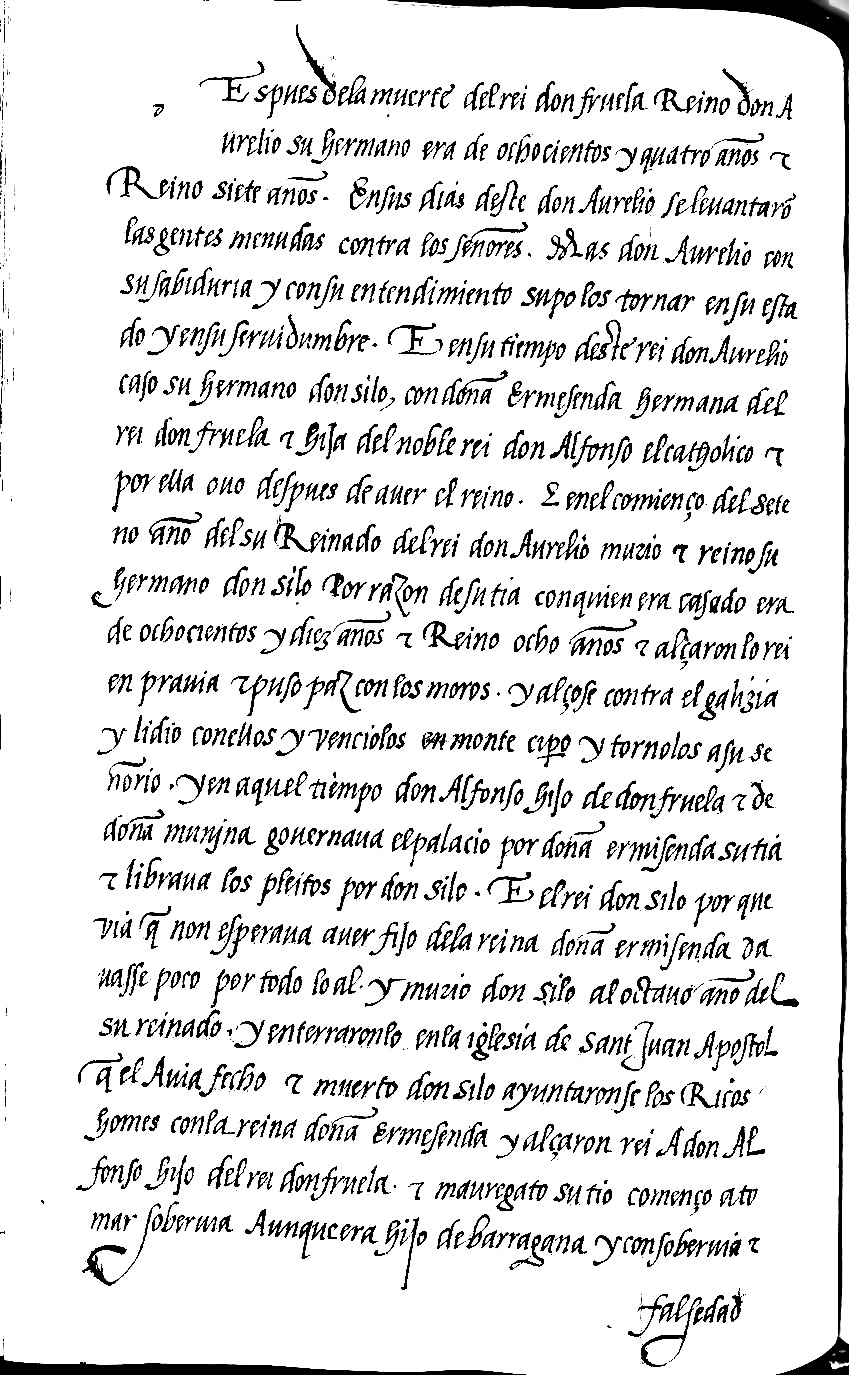 D Espues dela muerte del rei don fruela Reino don A
urelio su hermano era de ochocientos y quatro años τ
Reino siete años. En sus dias deste don Aurelio se leuantarō
las gentes menudas contra los señores. Mas don Aurelio con
su sabiduria y con su entendimiento supo los tornar en su esta
do y en su seruidumbre. E en su tiempo deste rei don Aurelio
caso su hermano don silo, con doña Ermesenda hermana del
rei don fruela τ hija del noble rei don Alfonso el catholico τ
por ella ouo despues de auer el reino. E en el comienço del sete
no año del su Reinado del rei don Aurelio murio τ reino su
hermano don silo Por razon de su tia con quien era casado era
de ochocientos y diez años τ Reino ocho años τ alçaron lo rei
en prauia τ puso paz con los moros. y alçose contra el galizia
y lidio con ellos y venciolos en monte cip̄o y tornolos a su se
ñorio. y en aquel tiempo don Alfonso hijo de don fruela τ de
doña munina gouernaua el palacio por doña ermisenda su tia
τ libraua los pleitos por don silo. E el rei don silo por que
via q̄ non esperaua auer fijo dela reina doña ermisenda da
uasse poco por todo lo al. y murio don silo al octauo año del
su reinado. y enterraronlo en la iglesia de Sant Juan Apostol
q̄ el Auia fecho τ muerto don silo ayuntaronse los Ricos
homes con la reina doña Ermesenda y alçaron rei A don Al
fonso hijo del rei don fruela. τ mauregato su tio començo a to
mar soberuia Aunque era hijo de barragana y con soberuia τ
falsedad